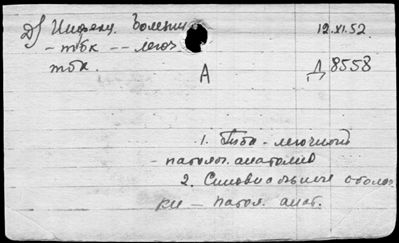 Инфекц. Болезни 12.XI.52.
- тбк -- легоч.
тбк. А Д 8558
1. Тбк - легочный
- патолог. анатомия
2. Синовиальные оболоч
ки - патол. анат.